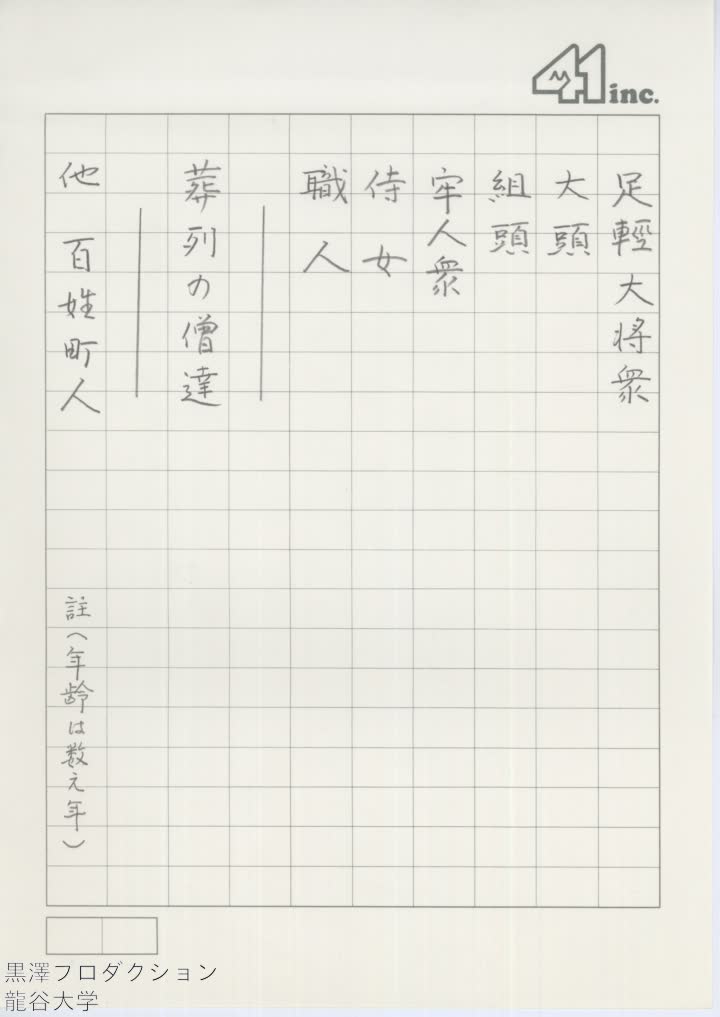 41 inc.
足輕大将衆
大頭
組頭
牢人衆
侍女
職人
葬列の僧達
他 百姓町人
註(年齢は数え年)
黒澤フロダクション
龍谷大学